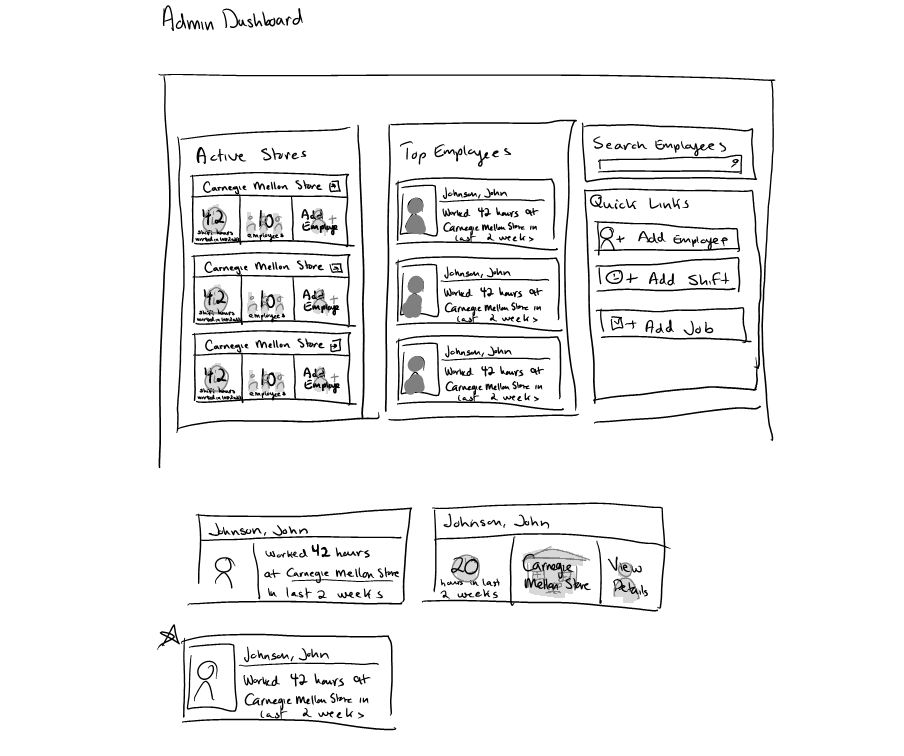 Admin Dashboard
Active Stores
Carnegie Mellon Store
42
shift hours
worked in last 2 weeks
10
employees
Add
Employee
Carnegie Mellon Store
42
shift hours
10
employees
Add
Employe
Carnegie Mellon Store
42
shift hours
10
employees
Add
Employe
Top Employees
Johnson, John
Worked 42 hours at
Carnegie Mellon Store in
last 2 weeks
Johnson, John
Worked 42 hours at
Carnegie Mellon Store in
last 2 weeks
Johnson, John
Worked 42 hours at
Carnegie Mellon Store in
last 2 weeks
Search Employees
Quick Links
+ Add Employee
+ Add Shift
+ Add Job
Johnson, John
Worked 42 hours
at Carnegie Mellon Store
in last 2 weeks
Johnson, John
20
hours in last
2 weeks
Carnegie
Mellon Store
View
Details
Johnson, John
Worked 42 hours at
Carnegie Mellon Store in
last 2 weeks